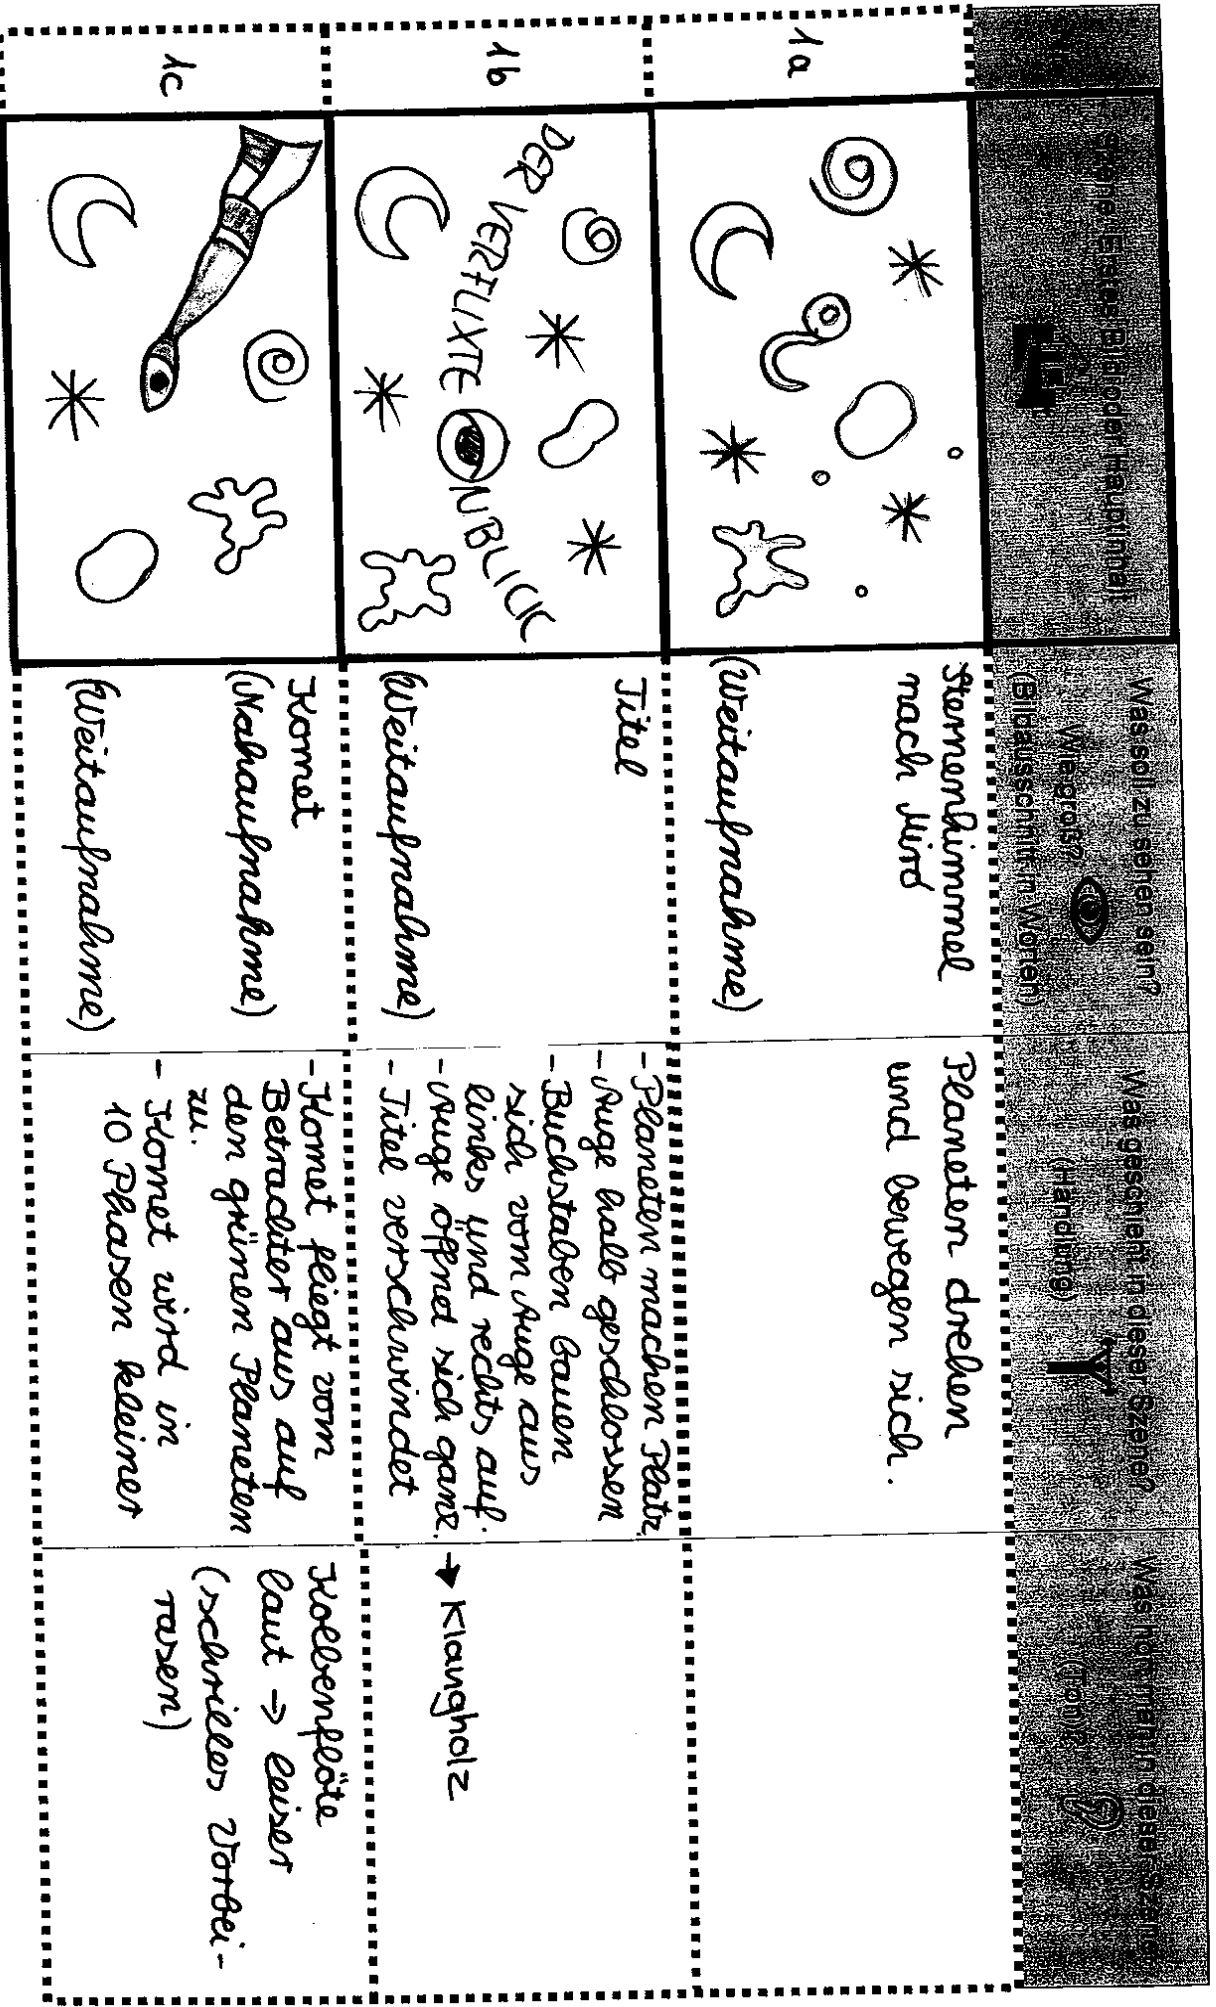 Szene: Erstes Bild oder Hauptinhalt
Was soll zu sehen sein?
Wie groß?
(Bildausschnitt in Worten)
Was geschieht in dieser Szene?
(Handlung)
Was hört man in dieser Szene?
(Ton)
1a
Sternenhimmel
nach Miró
(Weitaufnahme)
Planeten drehen
und bewegen sich.
1b
DER VERFLIXTE NBLICK
Titel
(Weitaufnahme)
- Planeten machen Platz
- Auge halb geschlossen
- Buchstaben bauen
sich vom Auge aus
links und rechts auf.
- Auge öffnet sich ganz. → Klangholz
- Titel verschwindet
1c
Komet
(Nahaufnahme)
(Weitaufnahme)
- Komet fliegt vom
Betrachter aus auf
den grünen Planeten
zu.
- Komet wird in
10 Phasen kleiner
Kolbenflöte
laut → leiser
(schrilles Vorbei-
rasen)